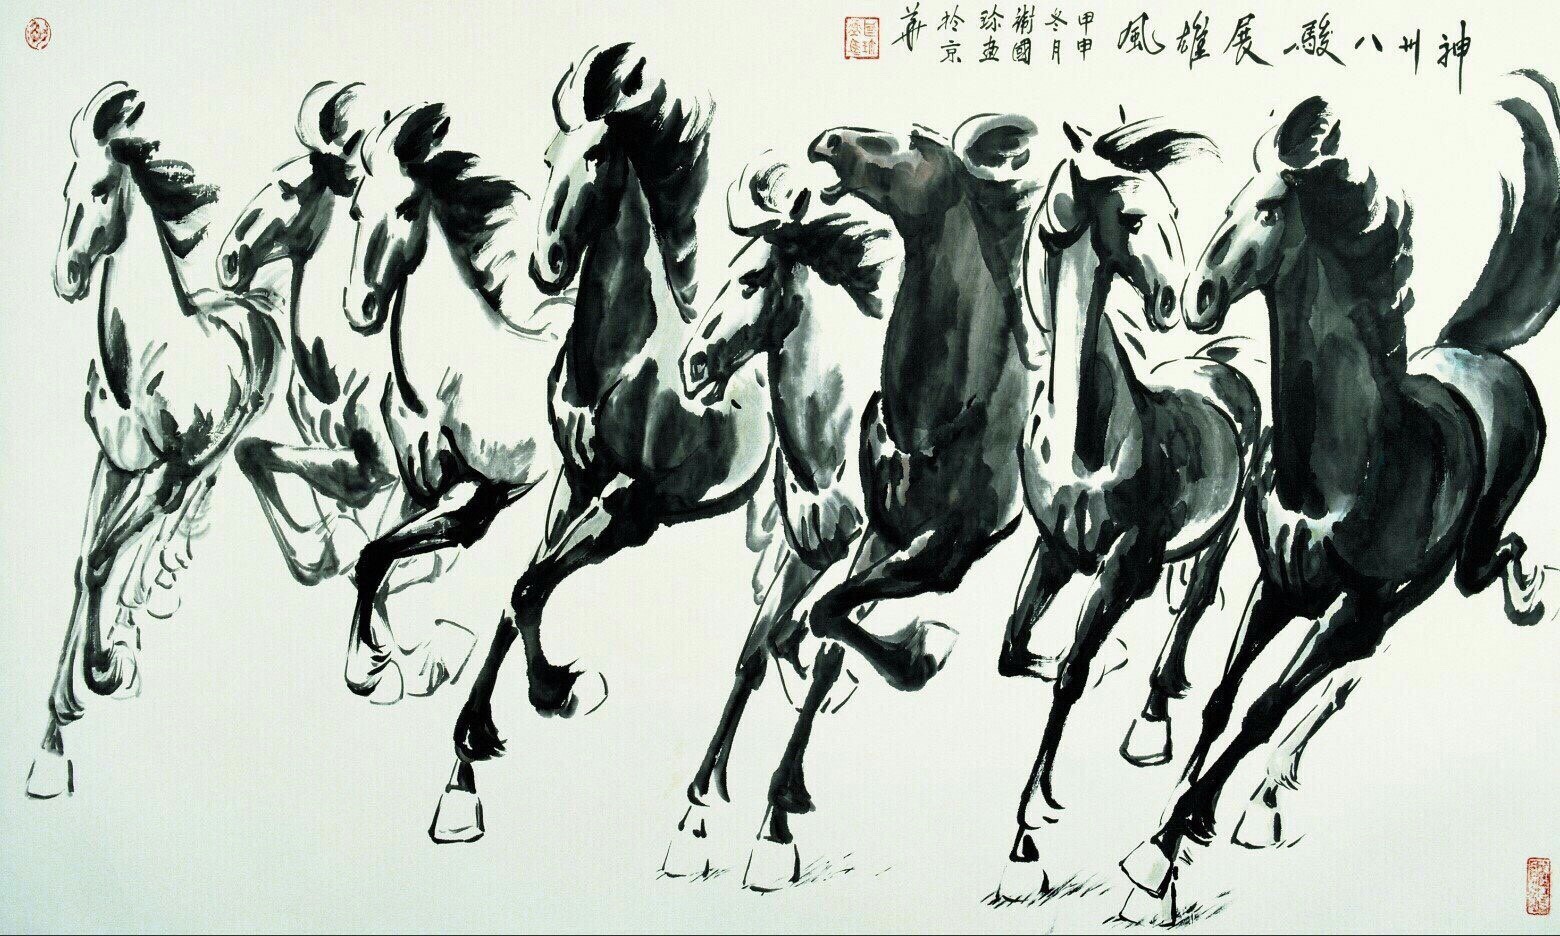 神州八駿展雄風
甲申
冬月
衛國
珍画
於京
華